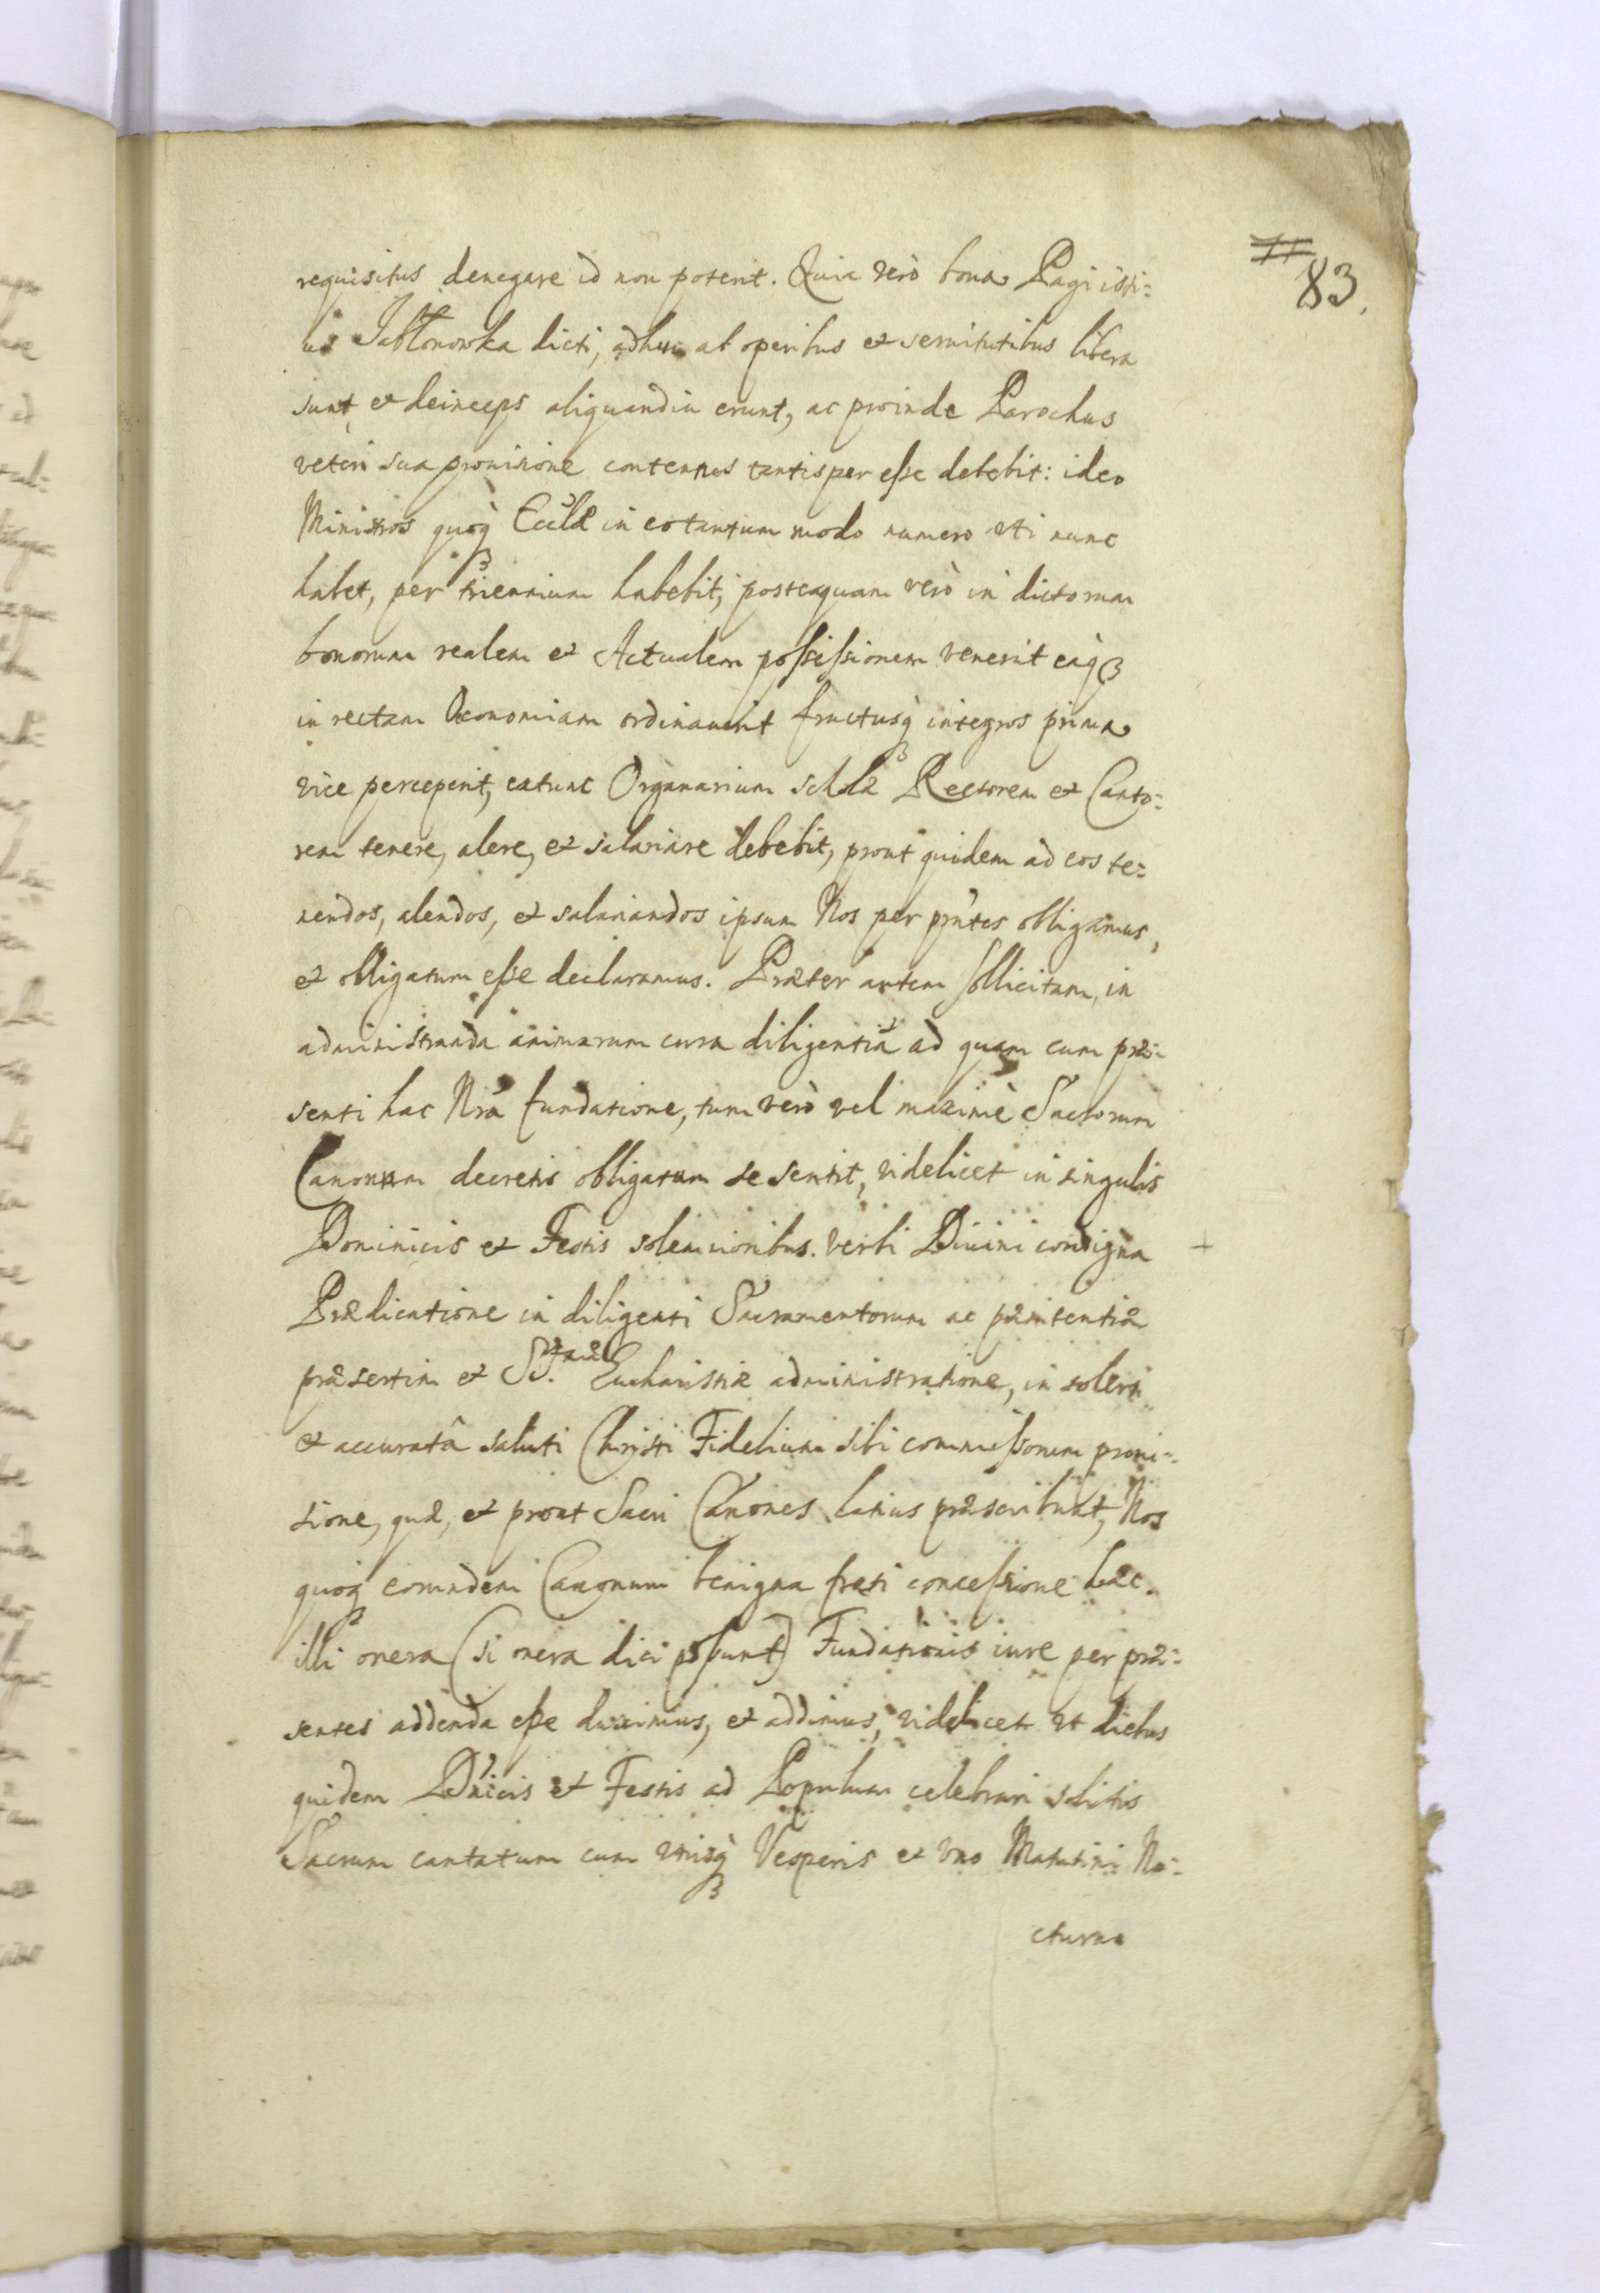 83.
requisitus denegare id non poterit. Quia verò bona Pagi isti:
us Jabłonowka dicti, adhuc ab operibus et servitutibus libera
sunt, et deinceps aliquandiu erunt, ac proinde Parochus
veteri sua provisione contentus tantisper esse debebit: ideo
Ministros quoq Eccłae in eo tantum modo numero uti nunc
habet, per triennium habebit, posteaquam verò in dictorum
bonorum realem et Actualem possessionem venerit eaq
in rectam Oeconomiam ordinaverit fructusq integros prima
vice perceperit, extunc Organarium schłae Rectorem et Canto:
rem tenere, alere, et salariare debebit, prout quidem ad eos te:
nendos, alendos, et salariandos ipsum Nos per pntes obligamus,
et obligatum esse declaramus. Praeter autem sollicitam, in
administranda animarum cura diligentiâ ad quam cum prae:
senti hac Nrã fundatione, tum verò vel maximè Sacrorum
Canonum decretis obligatum se sentit, videlicet in singulis
Dominicis et Festis solemnioribus. verbi Divini condigna
Praedicatione in diligenti Sacramentorum ac paenitentiae
praesertim et SS.mae Eucharistiae administratione, in solerti
et accuratâ saluti Christi Fidelium sibi commissorum provi:
sione, quae, et prout Sacri Canones latius praescribunt, Nos
quoq eorundem Canonum benigna freti concessione haec
illi onera (si onera dici possunt) Fundationis iure per prae:
sentes addenda esse duximus, et addimus, videlicet ut diebus
quidem Dnicis et Festis ad Populum celebrari solitis
Sacrum cantatum cum utrisq Vesperis et uno Matutini No:
cturno